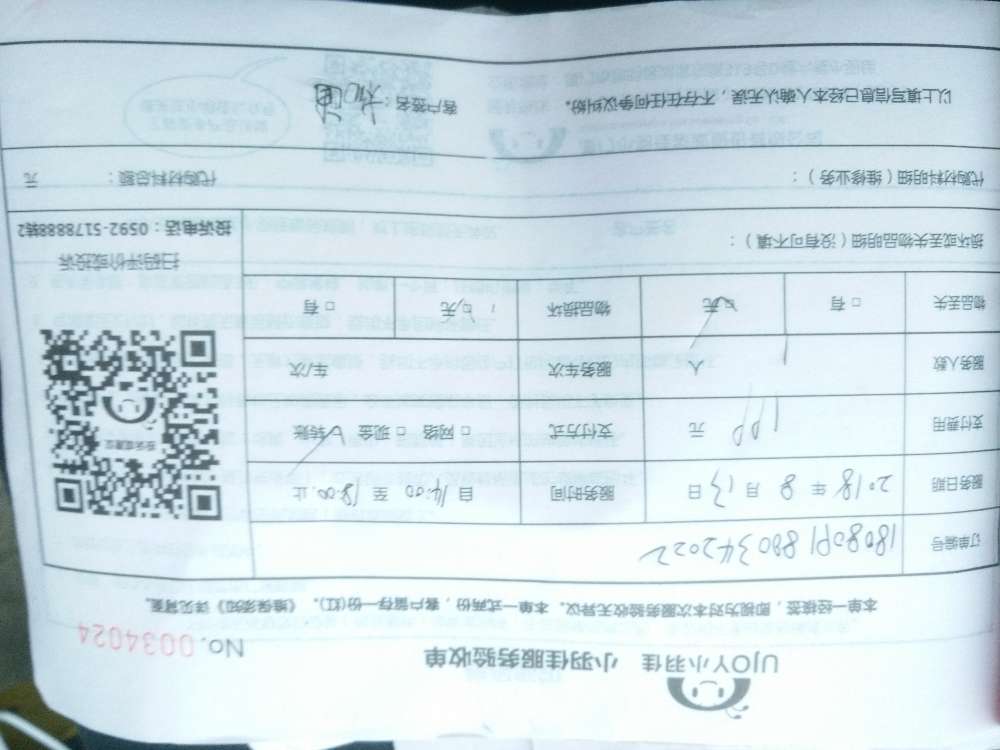 UJOY小羽佳 小羽佳服务验收单 No. 0034024
本单一经接签，即视为对本次服务验收无异议。本单一式两份，客户留存一份(红)。《维保须知》详见背面。
订单编号 180809180034 2022
服务日期 2018年8月13日 服务时间 自14:00至18:00止
支付费用 199 元 支付方式 □网络 □现金 ☑转账
服务人数 1 人 服务车次 车/次
物品丢失 □有 ☑无 物品损坏 □无 □有
扫码评价或投诉
投诉电话：0592-5178888转2
损坏或丢失物品明细（没有可不填）：
代购材料明细（维修业务）： 代购材料总额： 元
以上填写信息已经本人确认无误，不存在任何争议纠纷。 客户签名：